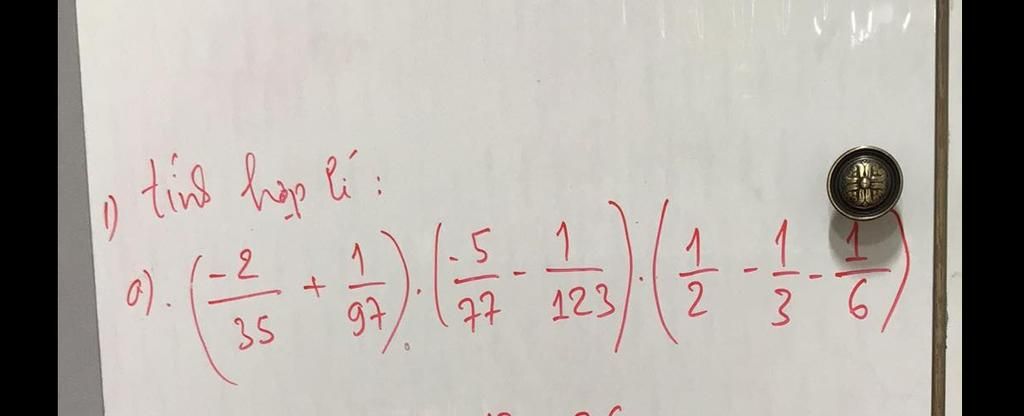 1) tính hợp lí :
a). (-2/35 + 1/97) . (-5/77 - 1/123) . (1/2 - 1/3 - 1/6)